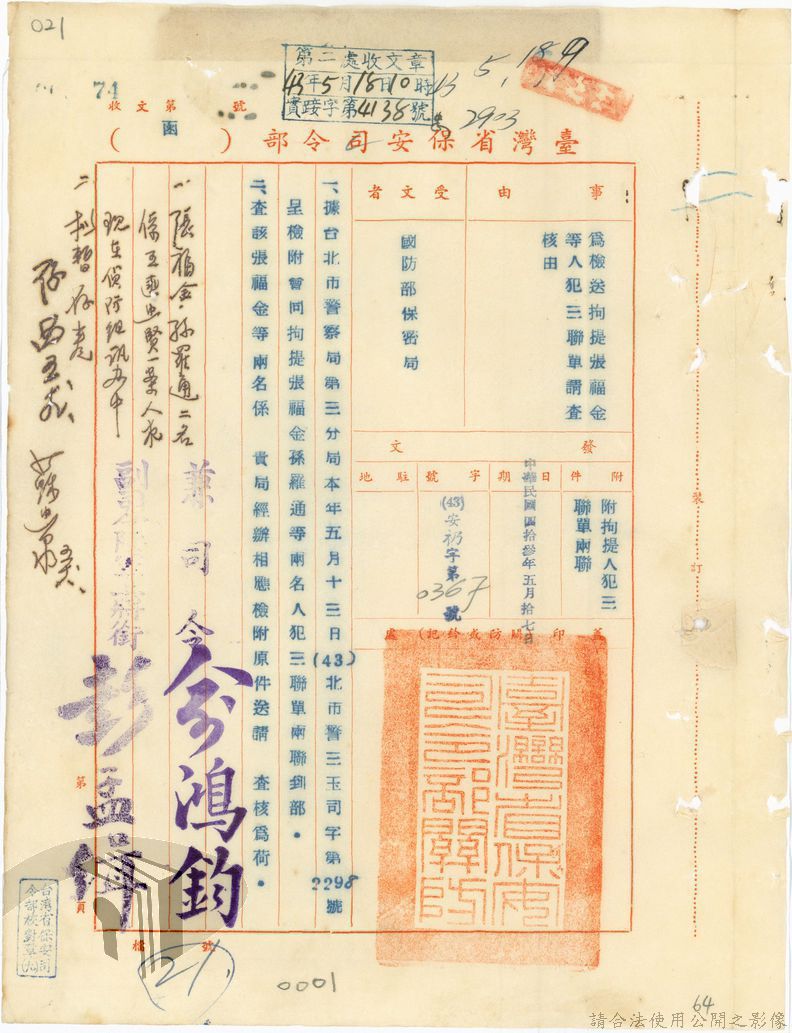 021
第二處收文章
43年5月18日10時
實踐字第4138號
43 5, 18, 9
2903
74
收文第 號
臺灣省保安司令部( 函 )
事由
為檢送拘提張福金
等人犯三聯單請查
核由
受文者
國防部保密局
發文
附件
附拘提人犯三
聯單兩聯
日期
中華民國四拾參年五月拾七日
字號
(43)安礽字第0367號
駐地
蓋印(或鈐記)處
臺灣省保安司令部關防
一、據台北市警察局第三分局本年五月十三日(43)北市警三玉司字第2298號
呈檢附暫同拘提張福金孫羅通等兩名人犯三聯單兩聯到部。
二、查該張福金等兩名係 貴局經辦相應檢附原件送請 查核為荷。
兼司令俞鴻鈞
副司令
彭孟緝
一 張福金孫羅通二名
係王臭忠賢一案人犯
現在偵防組訊辦中
二 擬暫存卷
裝訂
第 頁
檔號
21.
台灣省保安司
令部校對章(六)
0001
64
請合法使用公開之影像